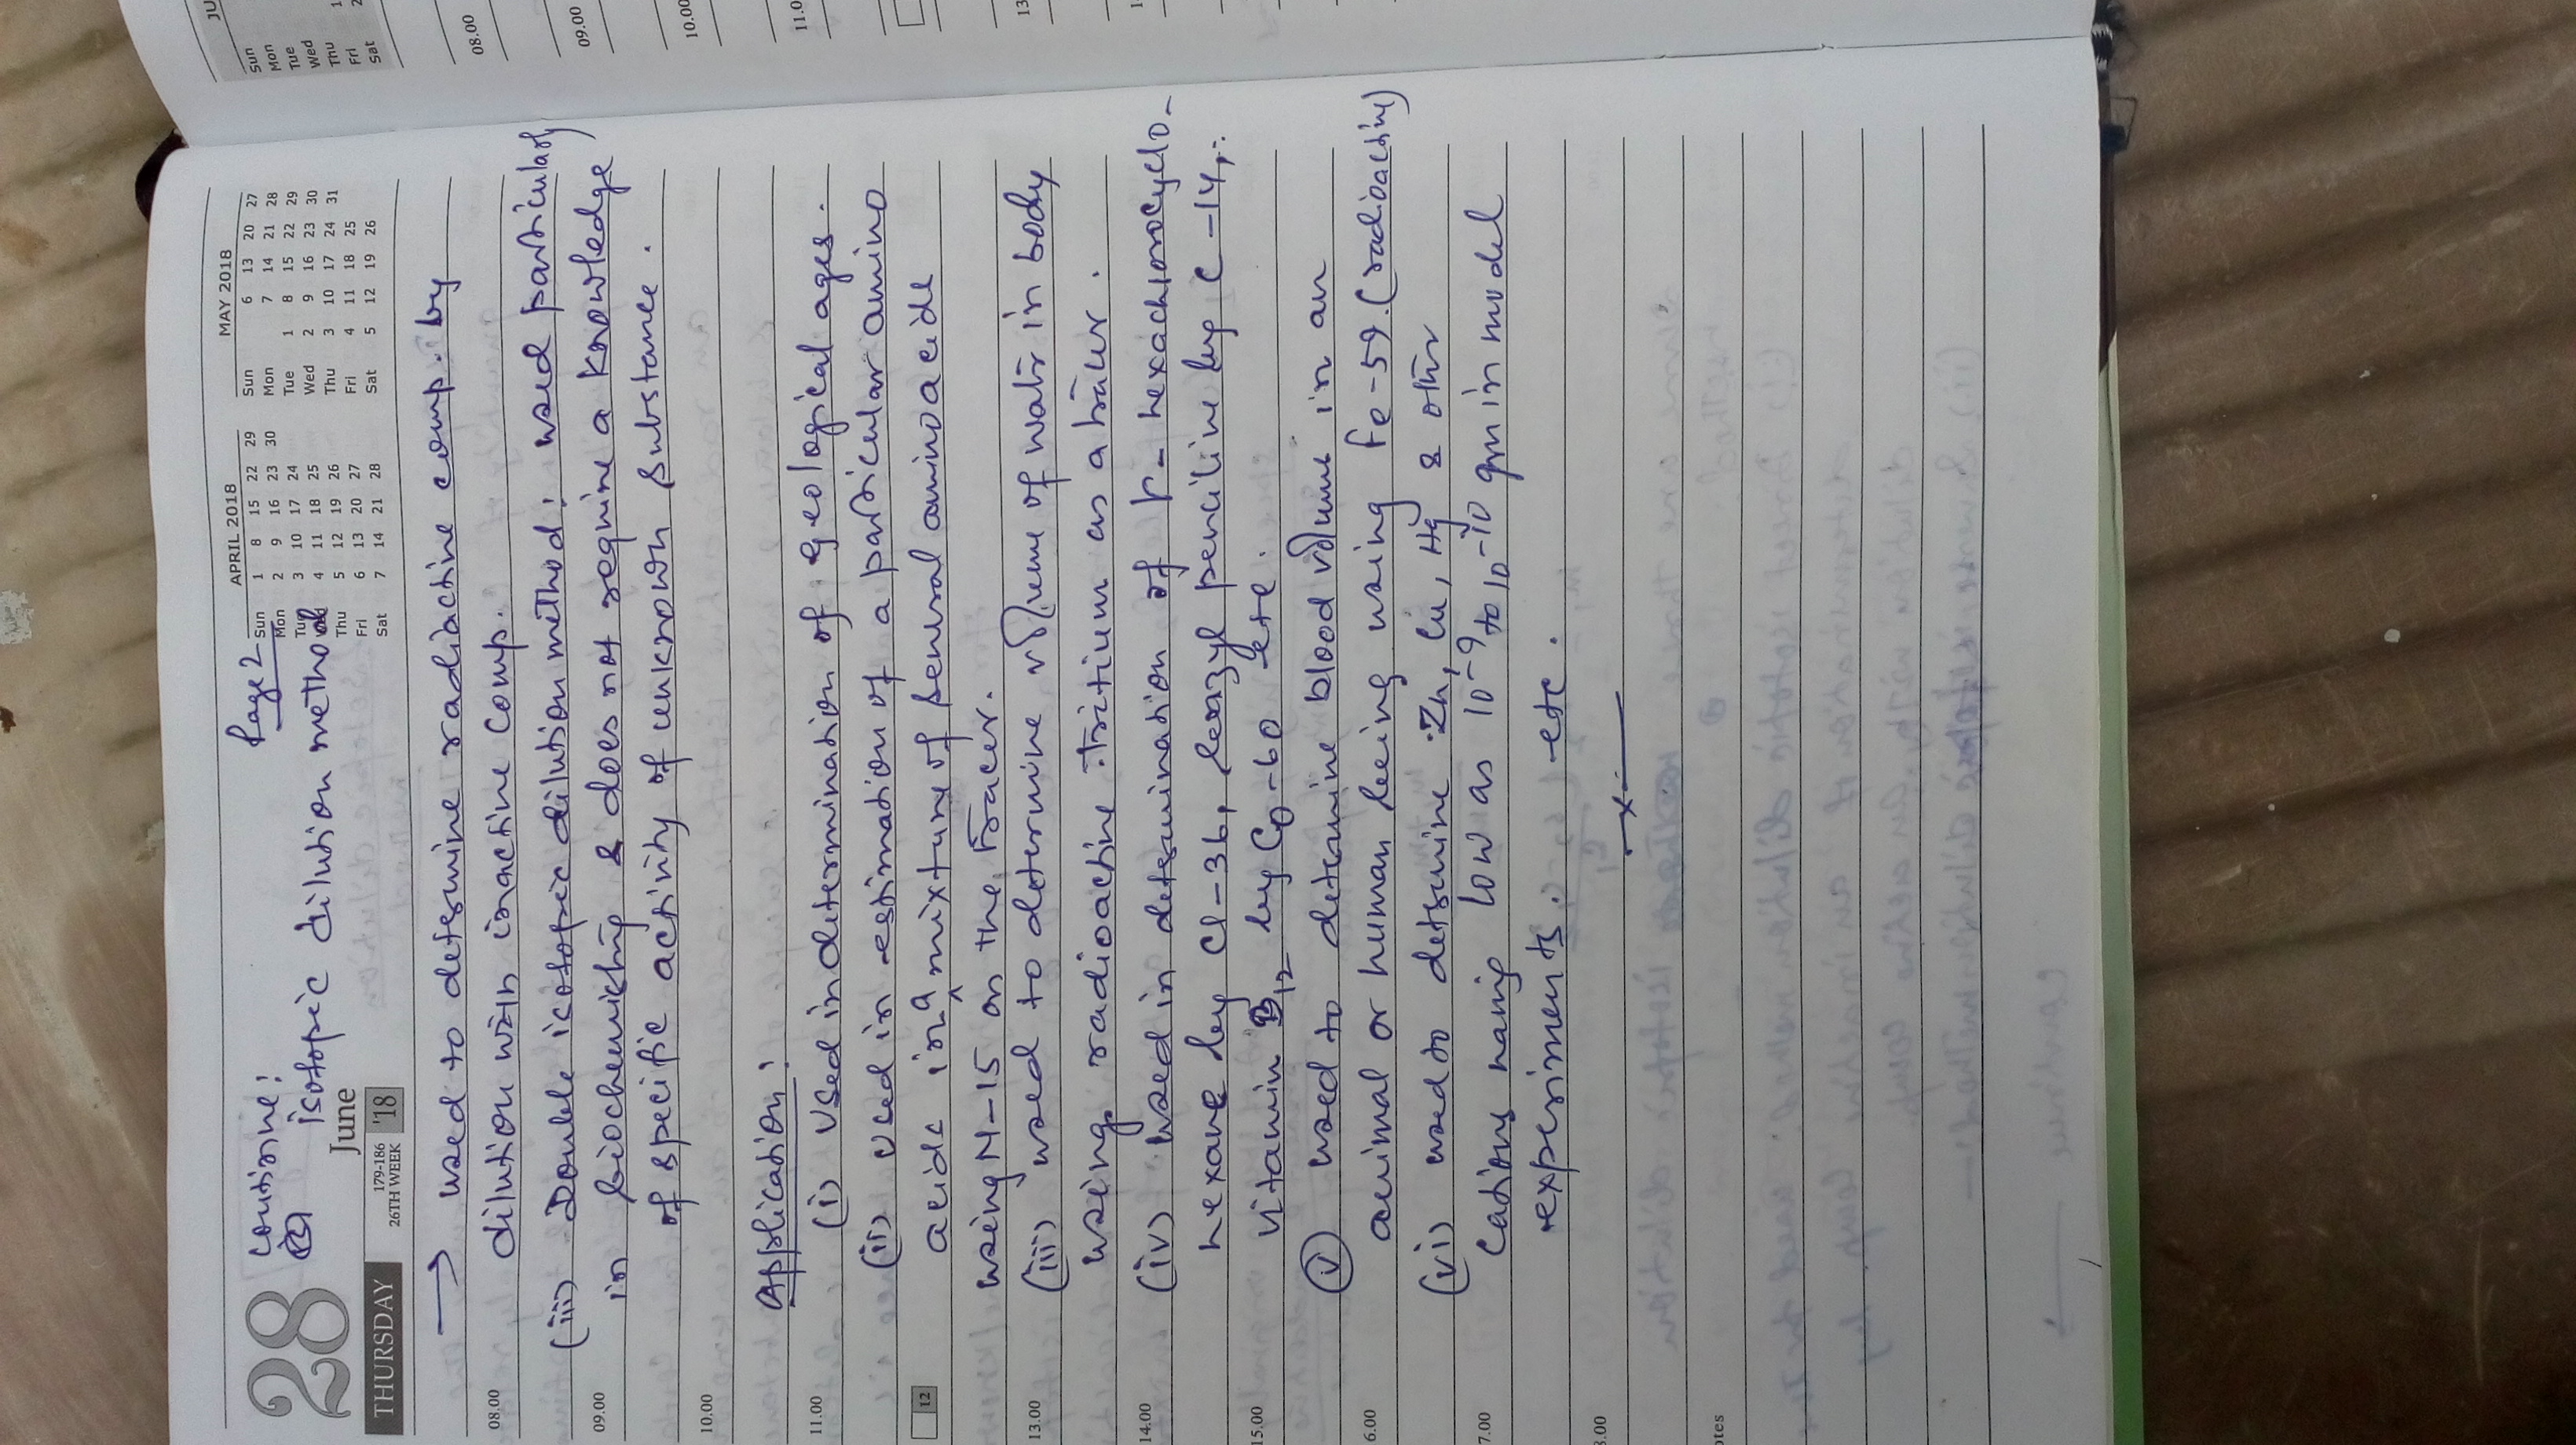 28
THURSDAY
Continue:
Page 2
isotopic dilution method
June
179-186
26TH WEEK
'18
APRIL 2018
Sun 1 8 15 22 29
Mon 2 9 16 23 30
Tue 3 10 17 24
Wed 4 11 18 25
Thu 5 12 19 26
Fri 6 13 20 27
Sat 7 14 21 28
MAY 2018
Sun 6 13 20 27
Mon 7 14 21 28
Tue 1 8 15 22 29
Wed 2 9 16 23 30
Thu 3 10 17 24 31
Fri 4 11 18 25
Sat 5 12 19 26
→ used to determine radiactive comp. by
08.00
dilution with inactive comp.
(iii) Double isotopic dilution method: used particularly
09.00
in biochemistry & does not require a knowledge
of specific activity of unknown substance.
10.00
Application:
11.00
(i) Used in determination of geological ages.
(ii) used in estimation of a particular amino
12
acids in a mixture of several amino acids
using N-15 as the tracer.
13.00
(iii) used to determine volume of water in body
using radioactive Tritium as a tracer.
14.00
(iv) used in determination of γ-hexachlorocyclo-
hexane by Cl-36, benzyl penciline by C-14,
15.00
vitamin B12 by Co-60 etc.
(v) used to determine blood volume in an
6.00
animal or human being using Fe-59. (radioactive)
(vi) used to determine Zn, Cu, Hg & other
7.00
Cations having low as 10-9 to 10-10 gm in model
experiments. etc.
8.00
—x—
otes
JU
Sun
Mon
Tue
Wed
Thu
Fri
Sat
08.00
09.00
10.00
11.0
13